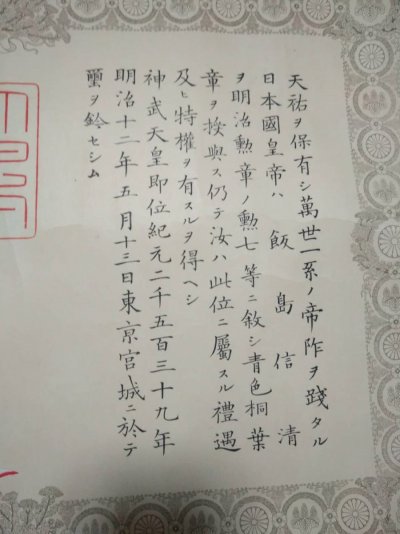 天祐ヲ保有シ萬世一系ノ帝阼ヲ踐タル
日本國皇帝ハ飯島信清
ヲ明治勲章ノ勲七等ニ敘シ青色桐葉
章ヲ挨與ス仍テ汝ハ此位ニ屬スル禮遇
及ヒ特權ヲ有スルヲ得ヘシ
神武天皇即位紀元二千五百三十九年
明治十二年五月十三日東亰宮城ニ於テ
璽ヲ鈴セシム